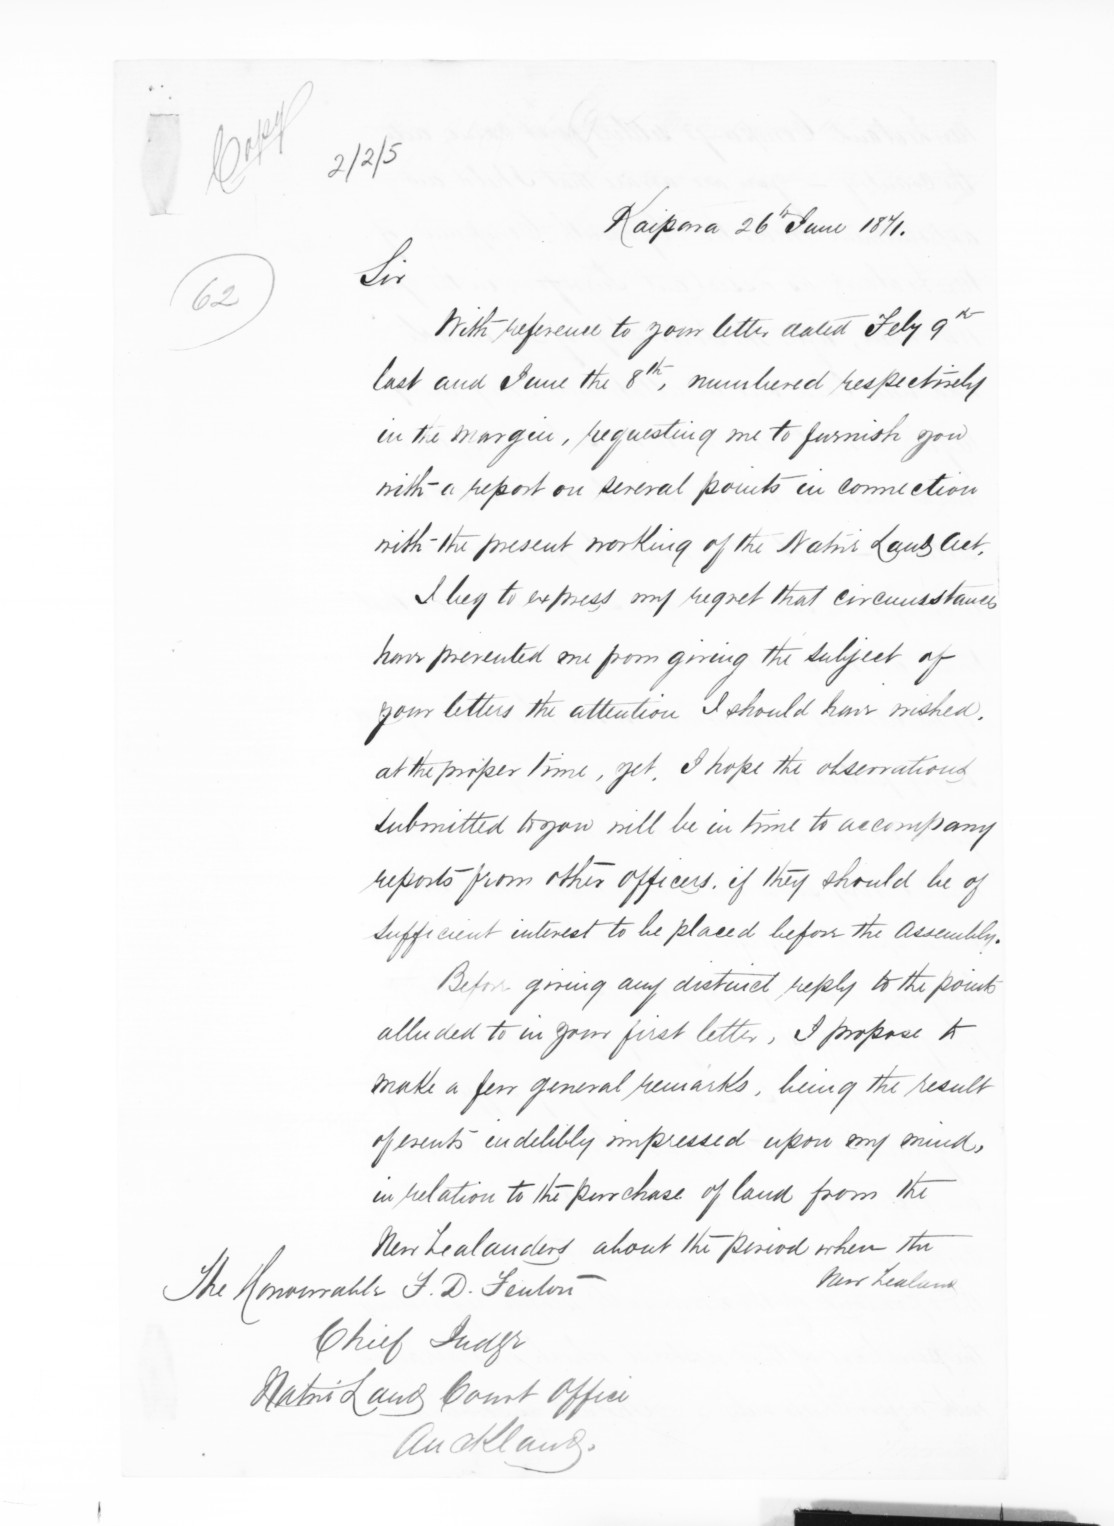 Copy
2/2/5
Kaipara 26th June 1871.
Sir
62
With reference to your letter dated Feby 9th
last and June the 8th, numbered respectively
in the margin, requesting me to furnish you
with a report on several points in connection
with the present working of the Native Lands Act.
I beg to express my regret that circumstances
have prevented me from giving the subject of
your letters the attention I should have wished.
at the proper time, yet, I hope the observations
submitted to you will be in time to accompany
reports from other officers. if they should be of
sufficient interest to be placed before the Assembly.
Before giving any distinct reply to the points
alluded to in your first letter, I propose to
make a few general remarks, being the result
of events indelibly impressed upon my mind,
in relation to the purchase of land from the
New Zealanders about the period when the
New Zealand
The Honourable F. D. Fenton
Chief Judge
Native Lands Court Office
Auckland.